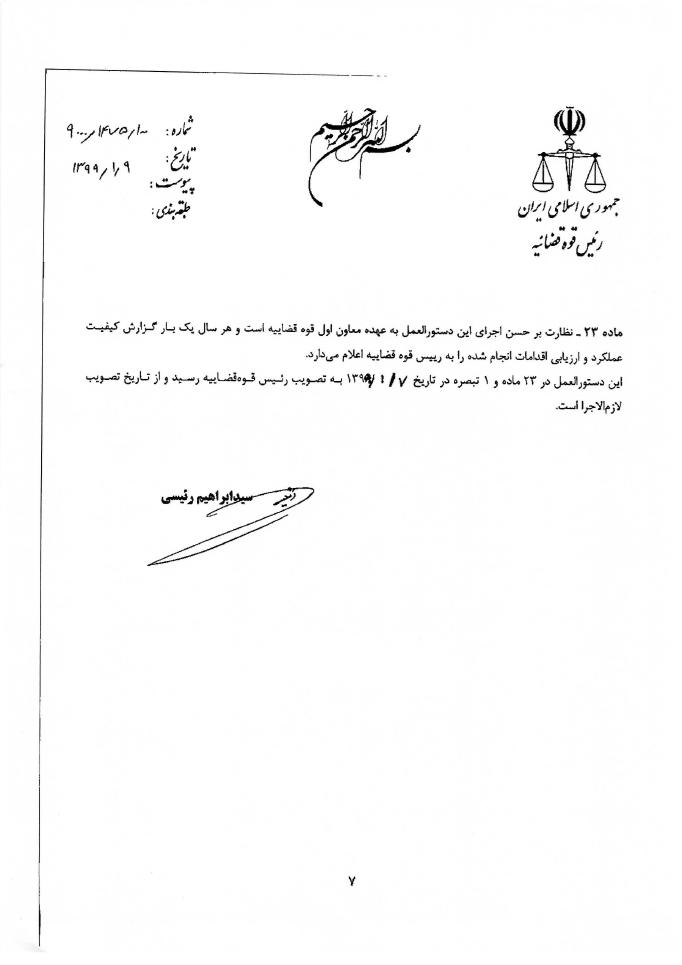 جمهوری اسلامی ایران
رئیس قوه قضائیه
بسم الله الرحمن الرحیم
شماره: ۹۰۰۰/۱۴۷۵/۱۰۰
تاریخ: ۱۳۹۹/۱/۹
پیوست:
طبقه‌بندی:
ماده ۲۳ ـ نظارت بر حسن اجرای این دستورالعمل به عهده معاون اول قوه قضاییه است و هر سال یک بار گزارش کیفیت
عملکرد و ارزیابی اقدامات انجام شده را به رییس قوه قضاییه اعلام می‌دارد.
این دستورالعمل در ۲۳ ماده و ۱ تبصره در تاریخ ۱۳۹۹/۱/۷ به تصویب رئیس قوه‌قضاییه رسید و از تاریخ تصویب
لازم‌الاجرا است.
سیدابراهیم رئیسی
۷